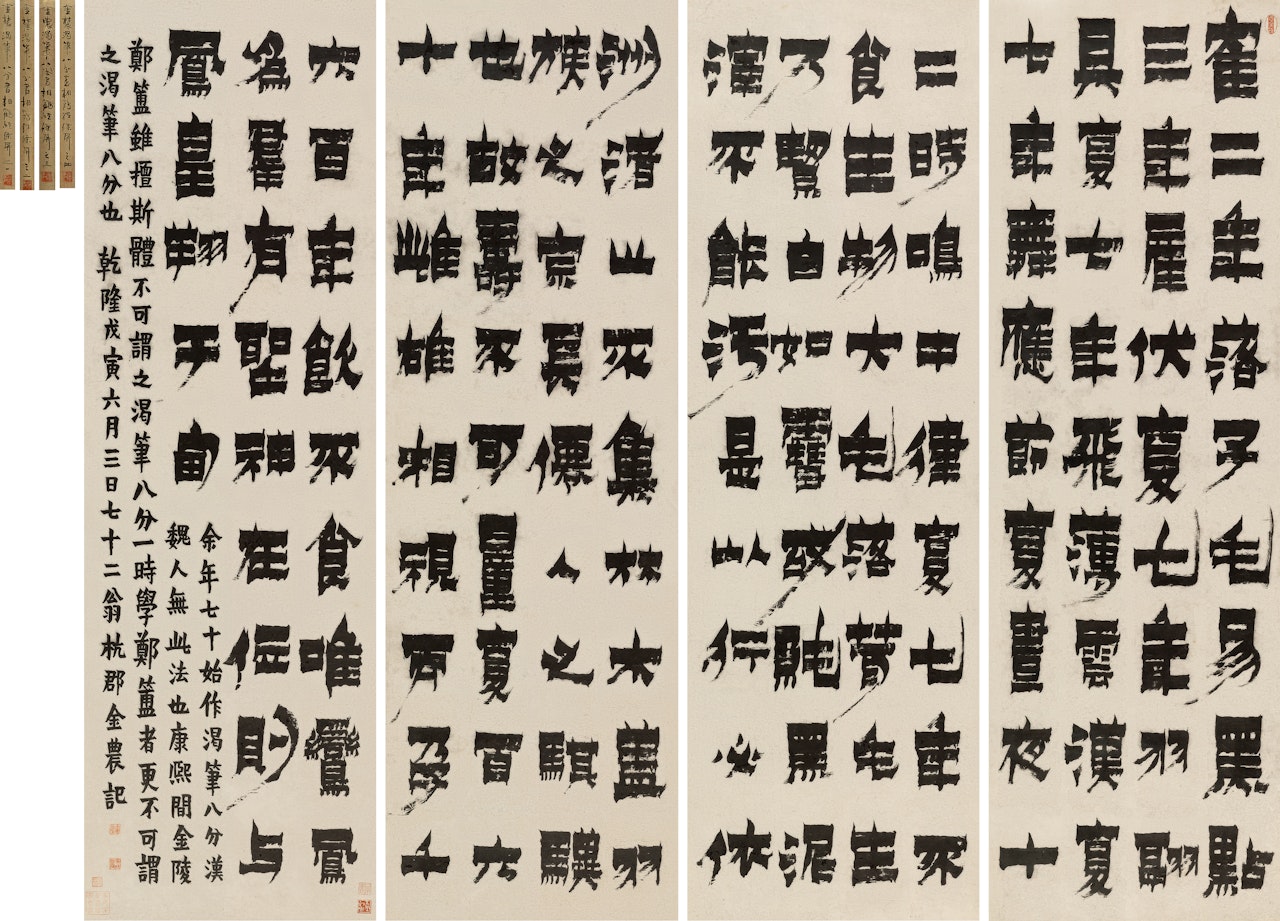 隺二年落子毛易黑點
三年產伏复七年羽翮
具复七年飛薄雲漢复
七年舞應節复晝夜十
二時鳴中律复七年不
食生物大毛落茸毛生
乃白如雪故黑泥
渾不能汚是以行必依
洲渚止不集林木蓋羽
族之宗真僊人之騏驥
也故壽不可量复百六
十年雌雄相視而孕千
六百年飲不食唯鸞鳳
為羣有聖神在位則与
鳳皇翔于甸
余年七十始作渴筆八分漢
魏人無此法也康熙間金陵
鄭簠雖擅斯體不可謂之渴筆八分一時學鄭簠者更不可謂
之渴筆八分也 乾隆戊寅六月三日七十二翁杭郡金農記